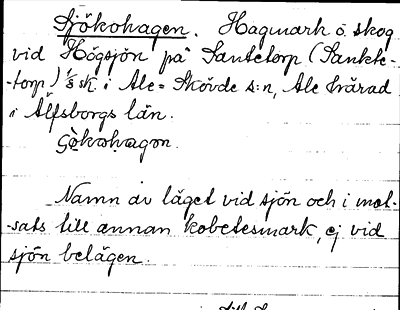 Sjökohagen. Hagmark o. skog
vid Högsjön på Santetorp (Sankte-
-torp) 1/8 sk. i Ale-Skövde s:n, Ale härad
i Älfsborgs län.
Namn av läget vid sjön och i mot-
-sats till annan kobetesmark, ej vid
sjön belägen.